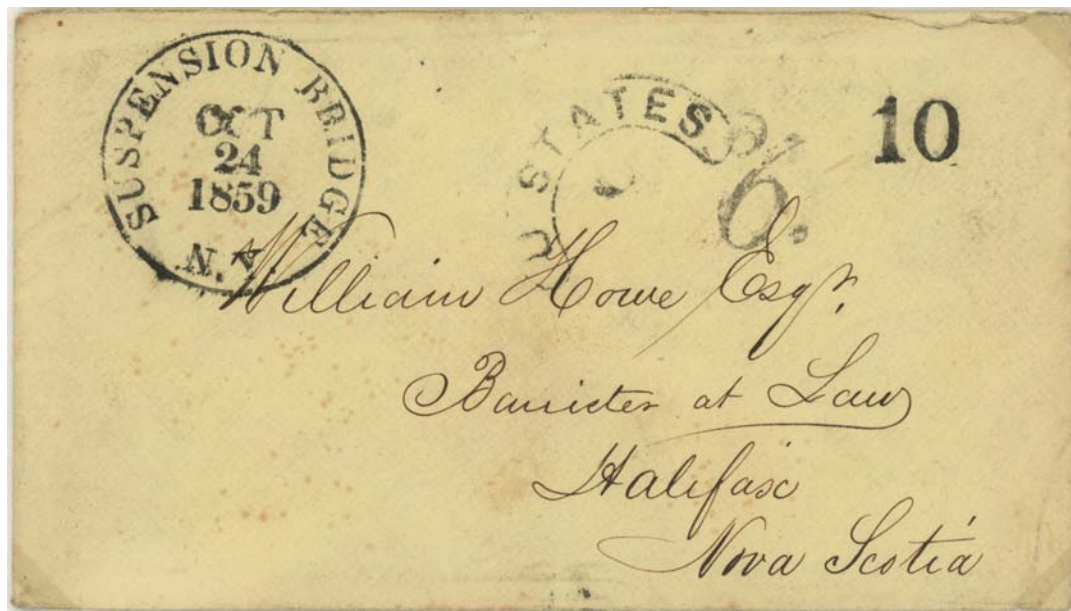 SUSPENSION BRIDGE
OCT
24
1859
N.Y.
U. STATES
6.
10
William Howe Esqr.
Barrister at Law
Halifax
Nova Scotia